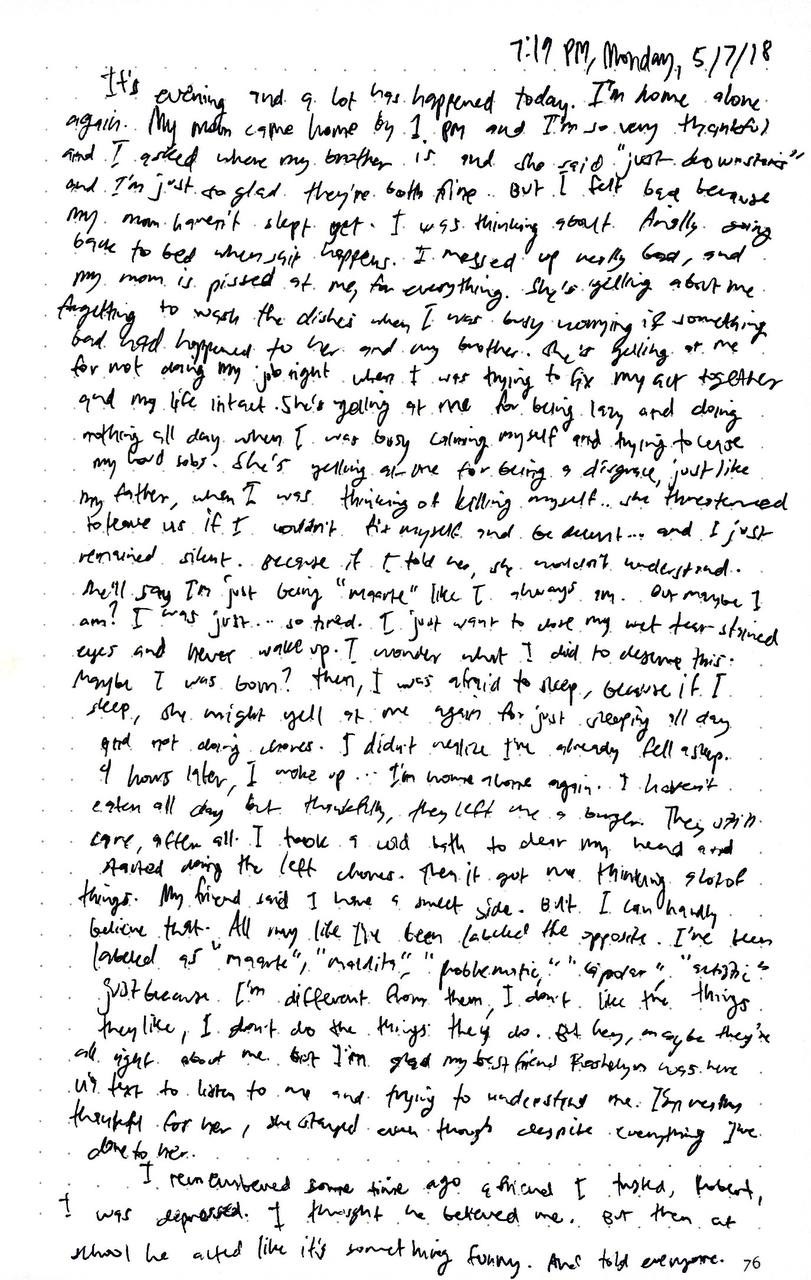 7:19 PM, Monday, 5/7/18
It's evening and a lot has happened today. I'm home alone
again. My mom came home by 1 pm and I'm so very thankful
and I asked where my brother is and she said "just downstairs"
and I'm just so glad they're both fine. But I felt bad because
my mom haven't slept yet. I was thinking about finally going
back to bed when shit happens. I messed up really bad, and
my mom is pissed at me, for everything. She's yelling about me
forgetting to wash the dishes when I was busy worrying if something
bad had happened to her and my brother. She's yelling at me
for not doing my job right when I was trying to fix my act together
and my life intact. She's yelling at me for being lazy and doing
nothing all day when I was busy calming myself and trying to cease
my loud sobs. She's yelling at me for being a disgrace, just like
my father, when I was thinking of killing myself... she threatened
to leave us if I wouldn't fix myself and be decent... and I just
remained silent. Because if I told her, she wouldn't understand.
She'll say I'm just being "maarte" like I always am. Or maybe I
am? I was just... so tired. I just want to close my wet tear stained
eyes and never wake up. I wonder what I did to deserve this.
Maybe I was born? Then, I was afraid to sleep, because if I
sleep, she might yell at me again for just sleeping all day
and not doing chores. I didn't realize I've already fell asleep.
4 hours later, I woke up... I'm home alone again. I haven't
eaten all day but thankfully, they left me a burger. They still
care, after all. I took a cold bath to clear my head and
started doing the left chores. Then it got me thinking a lot of
things. My friend said I have a sweet side. But I can hardly
believe that. All my life I've been labeled the opposite. I've been
labeled as "maarte", "maldita", "problematic," "bipolar", "autistic"
just because I'm different from them, I don't like the things
they like, I don't do the things they do. But hey, maybe they're
all right about me. But I'm glad my best friend was here
text to listen to me and trying to understand me. I'm really
thankful for her, she stayed even though despite everything I've
done to her.
I remembered some time ago a friend I trusted, Robert,
I was depressed. I thought he believed me. But then at
school he acted like it's something funny. And told everyone.
76